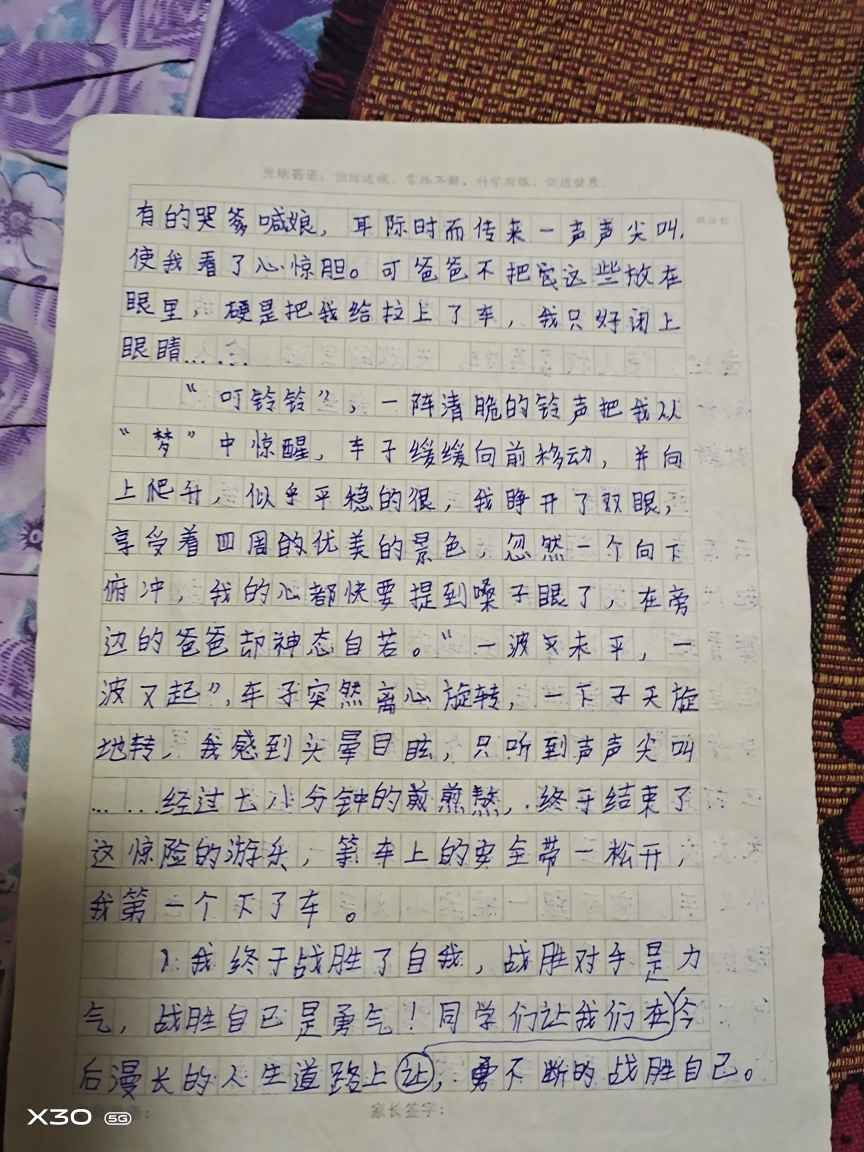 有的哭爹喊娘，耳际时而传来一声声尖叫，
使我看了心惊胆。可爸爸不把这些放在
眼里，硬是把我给拉上了车，我只好闭上
眼睛……
“叮铃铃”，一阵清脆的铃声把我从
“梦”中惊醒，车子缓缓向前移动，并向
上爬升，似乎平稳的很，我睁开了双眼，
享受着四周的优美的景色，忽然一个向下
俯冲，我的心都快要提到嗓子眼了，在旁
边的爸爸却神态自若。“一波又未平，一
波又起”，车子突然离心旋转，一下子天旋
地转，我感到头晕目眩，只听到声声尖叫
……经过七八分钟的煎熬，终于结束了
这惊险的游乐，等车上的安全带一松开，
我第一个下了车。
我终于战胜了自我，战胜对手是力
气，战胜自己是勇气！同学们让我们在今
后漫长的人生道路上让，勇不断的战胜自己。
家长签字：
X30 5G